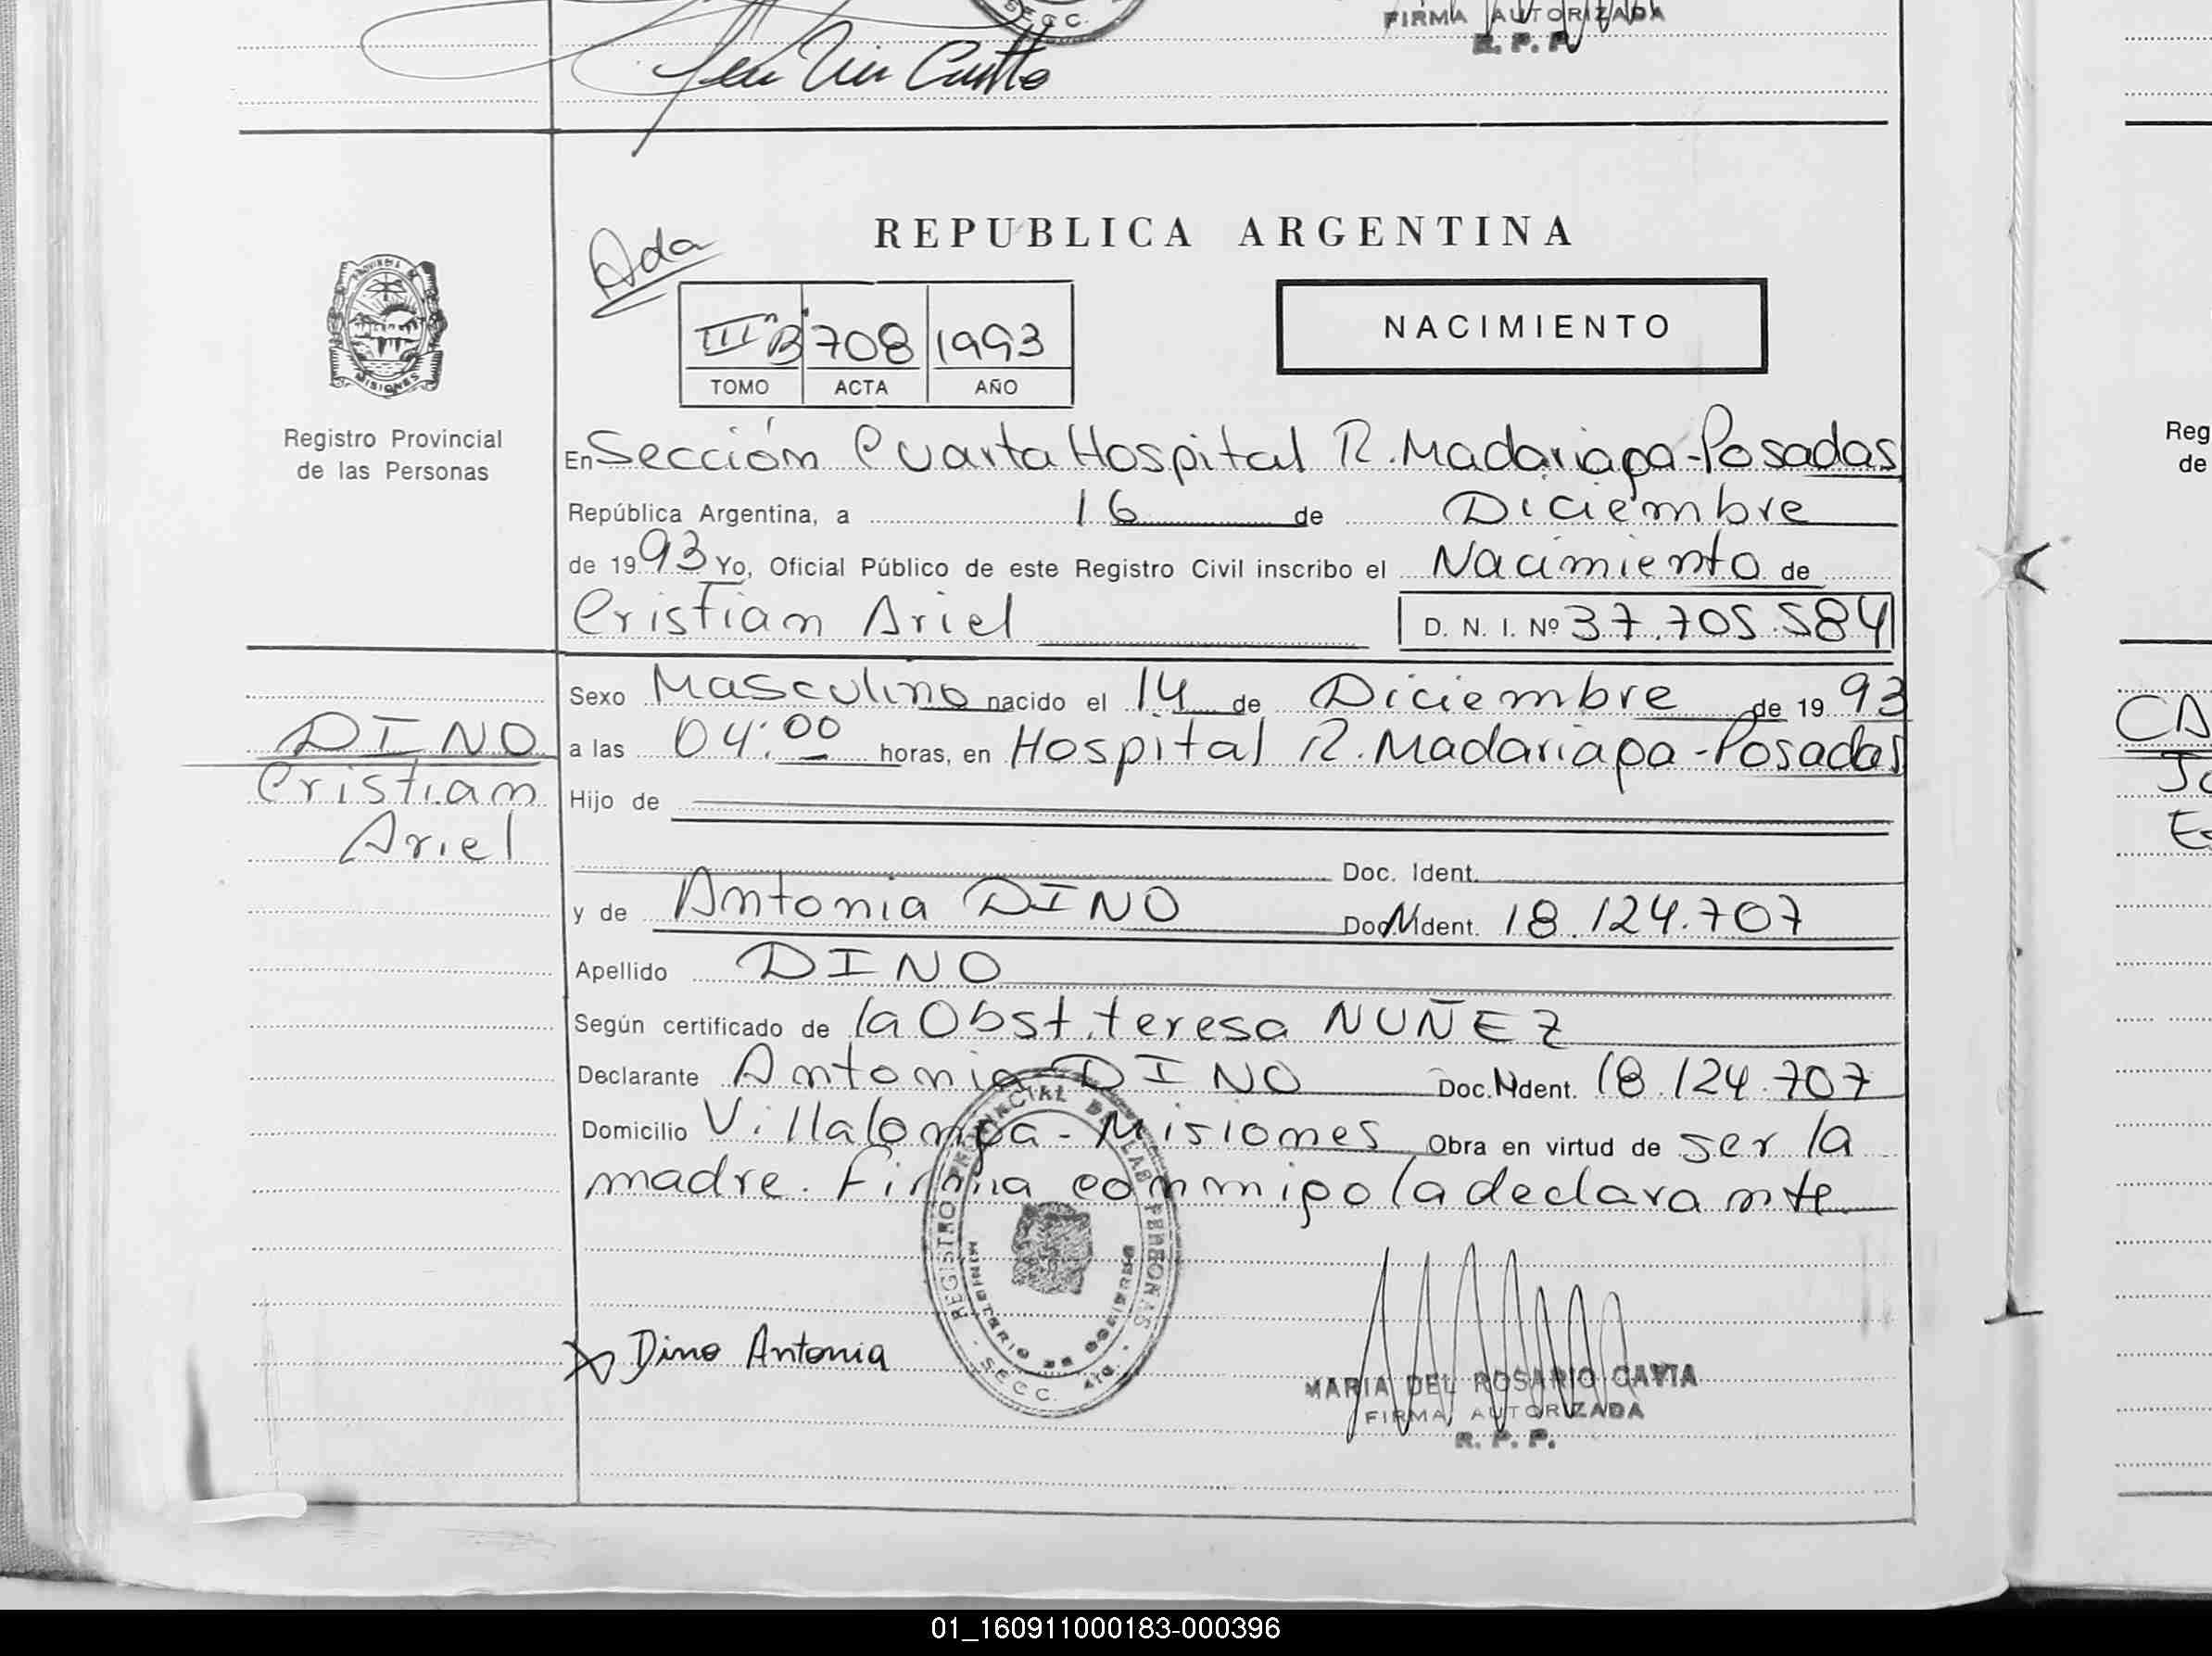 SECC.
FIRMA AUTORIZADA
R. P. P.
REPUBLICA ARGENTINA
Ada
PROVINCIA DE
MISIONES
Registro Provincial
de las Personas
NACIMIENTO
IIIºB 708 1993
TOMO ACTA AÑO
En Sección Cuarta Hospital R. Madariaga - Posadas
República Argentina, a 16 de Diciembre
de 1993 Yo, Oficial Público de este Registro Civil inscribo el Nacimiento de
Cristian Ariel D. N. I. Nº 37.705.584
Sexo Masculino nacido el 14 de Diciembre de 1993
a las 04:00 horas, en Hospital R. Madariaga - Posadas
DINO
Cristian
Ariel
Hijo de
Doc. Ident.
y de Antonia DINO Doc. Ident. 18.124.707
Apellido DINO
Según certificado de la Obst. teresa NUÑEZ
Declarante Antonia DINO Doc. Ident. 18.124.707
Domicilio Villalonga - Misiones Obra en virtud de ser la
madre. Firma conmigo la declarante
REGISTRO PROVINCIAL DE LAS PERSONAS
MINISTERIO DE GOBIERNO
- SECC. 4ta. -
Dino Antonia
MARIA DEL ROSARIO CAVIA
FIRMA AUTORIZADA
R. P. P.
Reg
de
CA
Jo
Es
01_160911000183-000396